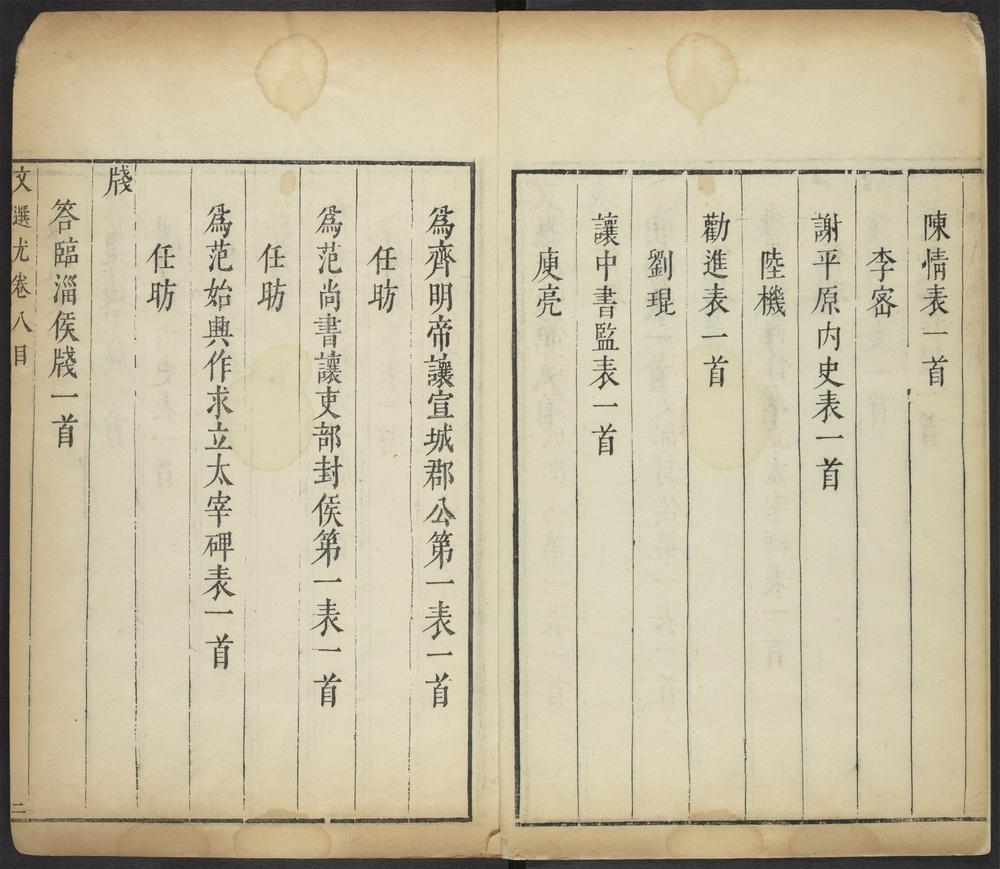 陳情表一首
李宻
謝平原内史表一首
陸機
勸進表一首
劉琨
讓中書監表一首
庾亮
爲齊明帝讓宣城郡公第一表一首
任昉
爲范尚書讓吏部封侯第一表一首
任昉
爲范始興作求立太宰碑表一首
任昉
牋
答臨淄侯牋一首
文選尤卷八目
二